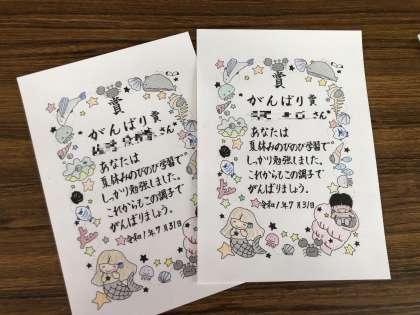 賞
がんばり賞
さん
あなたは
夏休みのびのび学習で
しっかり勉強しました。
これからもこの調子で
がんばりましょう。
令和1年7月31日
賞
がんばり賞
あなたは
夏休みのびのび学習で
しっかり勉強しました。
これからもこの調子で
がんばりましょう。
令和1年7月31日